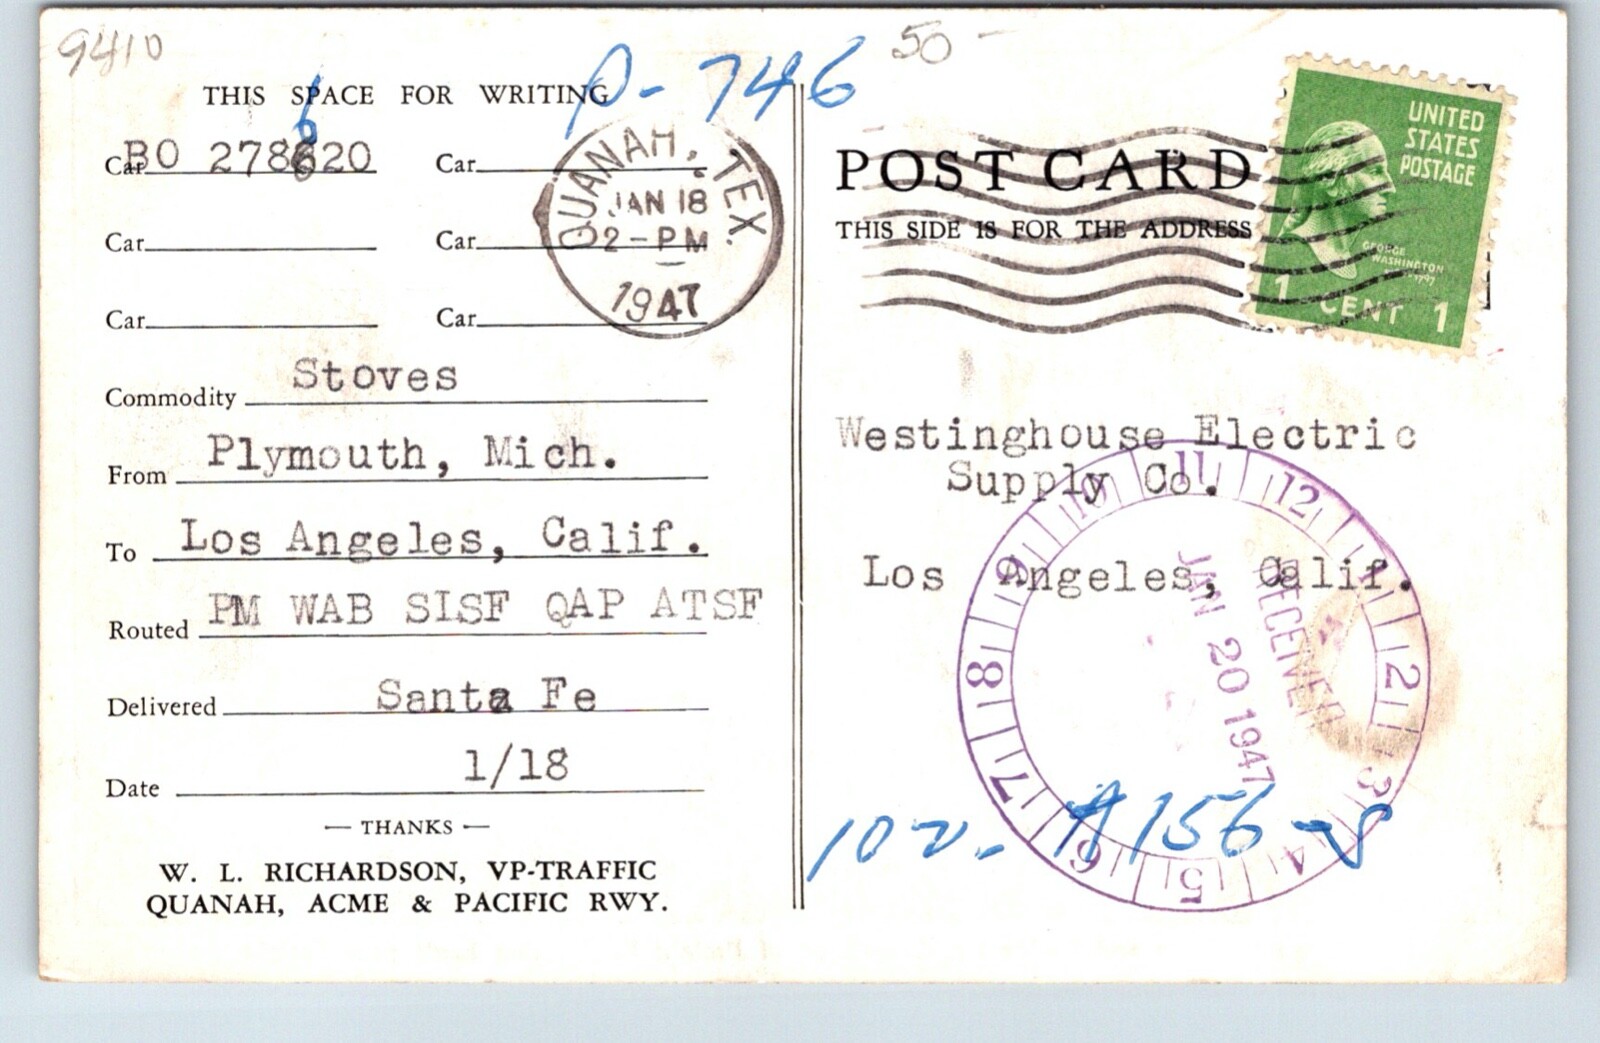 9410
50 -
P- 746
THIS SPACE FOR WRITING
6
Car BO 278620 Car
Car Car
Car Car
QUANAH, TEX.
JAN 18
2-PM
1947
Commodity Stoves
From Plymouth, Mich.
To Los Angeles, Calif.
Routed PM WAB SISF QAP ATSF
Delivered Santa Fe
Date 1/18
— THANKS —
W. L. RICHARDSON, VP-TRAFFIC
QUANAH, ACME & PACIFIC RWY.
POST CARD
THIS SIDE IS FOR THE ADDRESS
UNITED
STATES
POSTAGE
GEORGE
WASHINGTON
1 CENT 1
Westinghouse Electric
Supply Co.
Los Angeles, Calif.
12 1 2 3 4 5 6 7 8 9 10 11
RECEIVED
JAN 20 1947